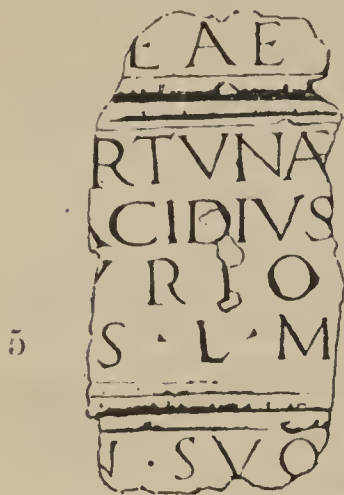 CAE
RTVNA
ACIDIVS
RIO
5 S · L · M
· SVO